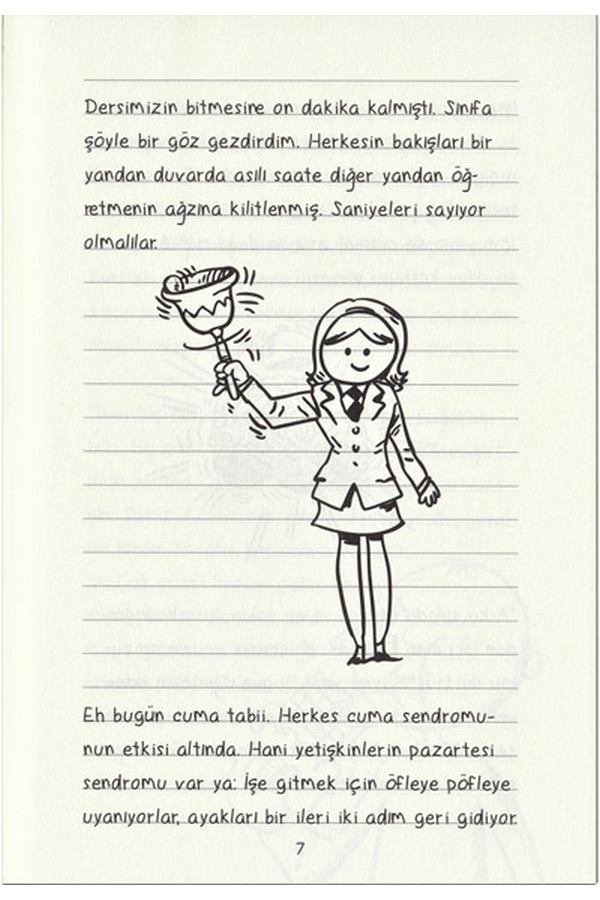 Dersimizin bitmesine on dakika kalmıştı. Sınıfa
şöyle bir göz gezdirdim. Herkesin bakışları bir
yandan duvarda asılı saate diğer yandan öğ-
retmenin ağzına kilitlenmiş. Saniyeleri sayıyor
olmalılar.
Eh bugün cuma tabii. Herkes cuma sendromu-
nun etkisi altında. Hani yetişkinlerin pazartesi
sendromu var ya: İşe gitmek için öfleye pöfleye
uyanıyorlar, ayakları bir ileri iki adım geri gidiyor.
7